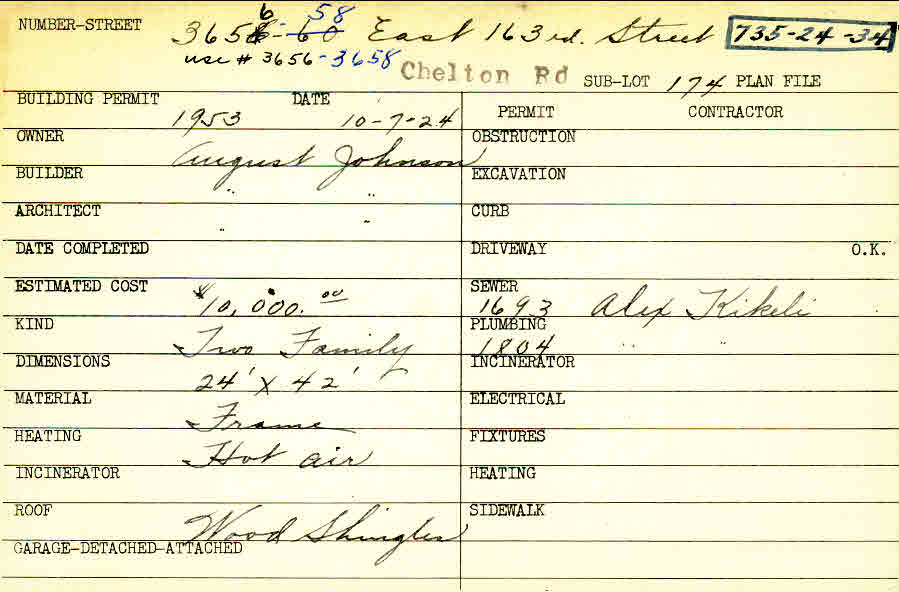 NUMBER-STREET 3656-58 East 163rd. Street 735-24-34
use # 3656-3658 Chelton Rd SUB-LOT 174 PLAN FILE
BUILDING PERMIT DATE PERMIT CONTRACTOR
1953 10-7-24
OWNER August Johnson OBSTRUCTION
BUILDER " " EXCAVATION
ARCHITECT " " CURB
DATE COMPLETED DRIVEWAY O.K.
ESTIMATED COST $10,000.00 SEWER 1693 Alex Kikeli
KIND Two Family PLUMBING 1804 " "
DIMENSIONS 24' x 42' INCINERATOR
MATERIAL Frame ELECTRICAL
HEATING Hot air FIXTURES
INCINERATOR HEATING
ROOF Wood Shingles SIDEWALK
GARAGE-DETACHED-ATTACHED